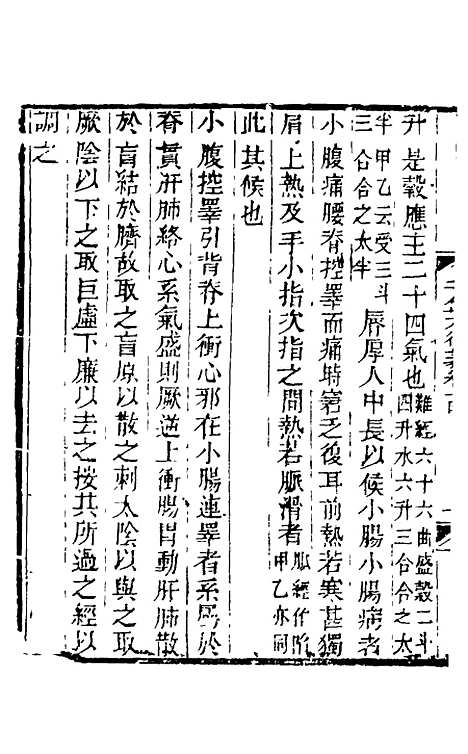 升是穀應主二十四氣也難經六十六曲盛穀二斗四升水六升三合合之太
半甲乙云受三斗三合合之太半脣厚人中長以候小腸小腸病者
小腹痛腰脊控睪而痛時窘乏復耳前熱若寒甚獨
肩上熱及手小指次指之間熱若脈滑者脈經作陷甲乙亦同
此其候也
小腹控睪引背脊上衝心邪在小腸連睪者系屬於
脊貫肝肺絡心系氣盛則厥逆上衝腸胃動肝肺散
於肓結於臍故取之肓原以散之刺太陰以與之取
厥陰以下之取巨虛下廉以去之按其所過之經以
調之